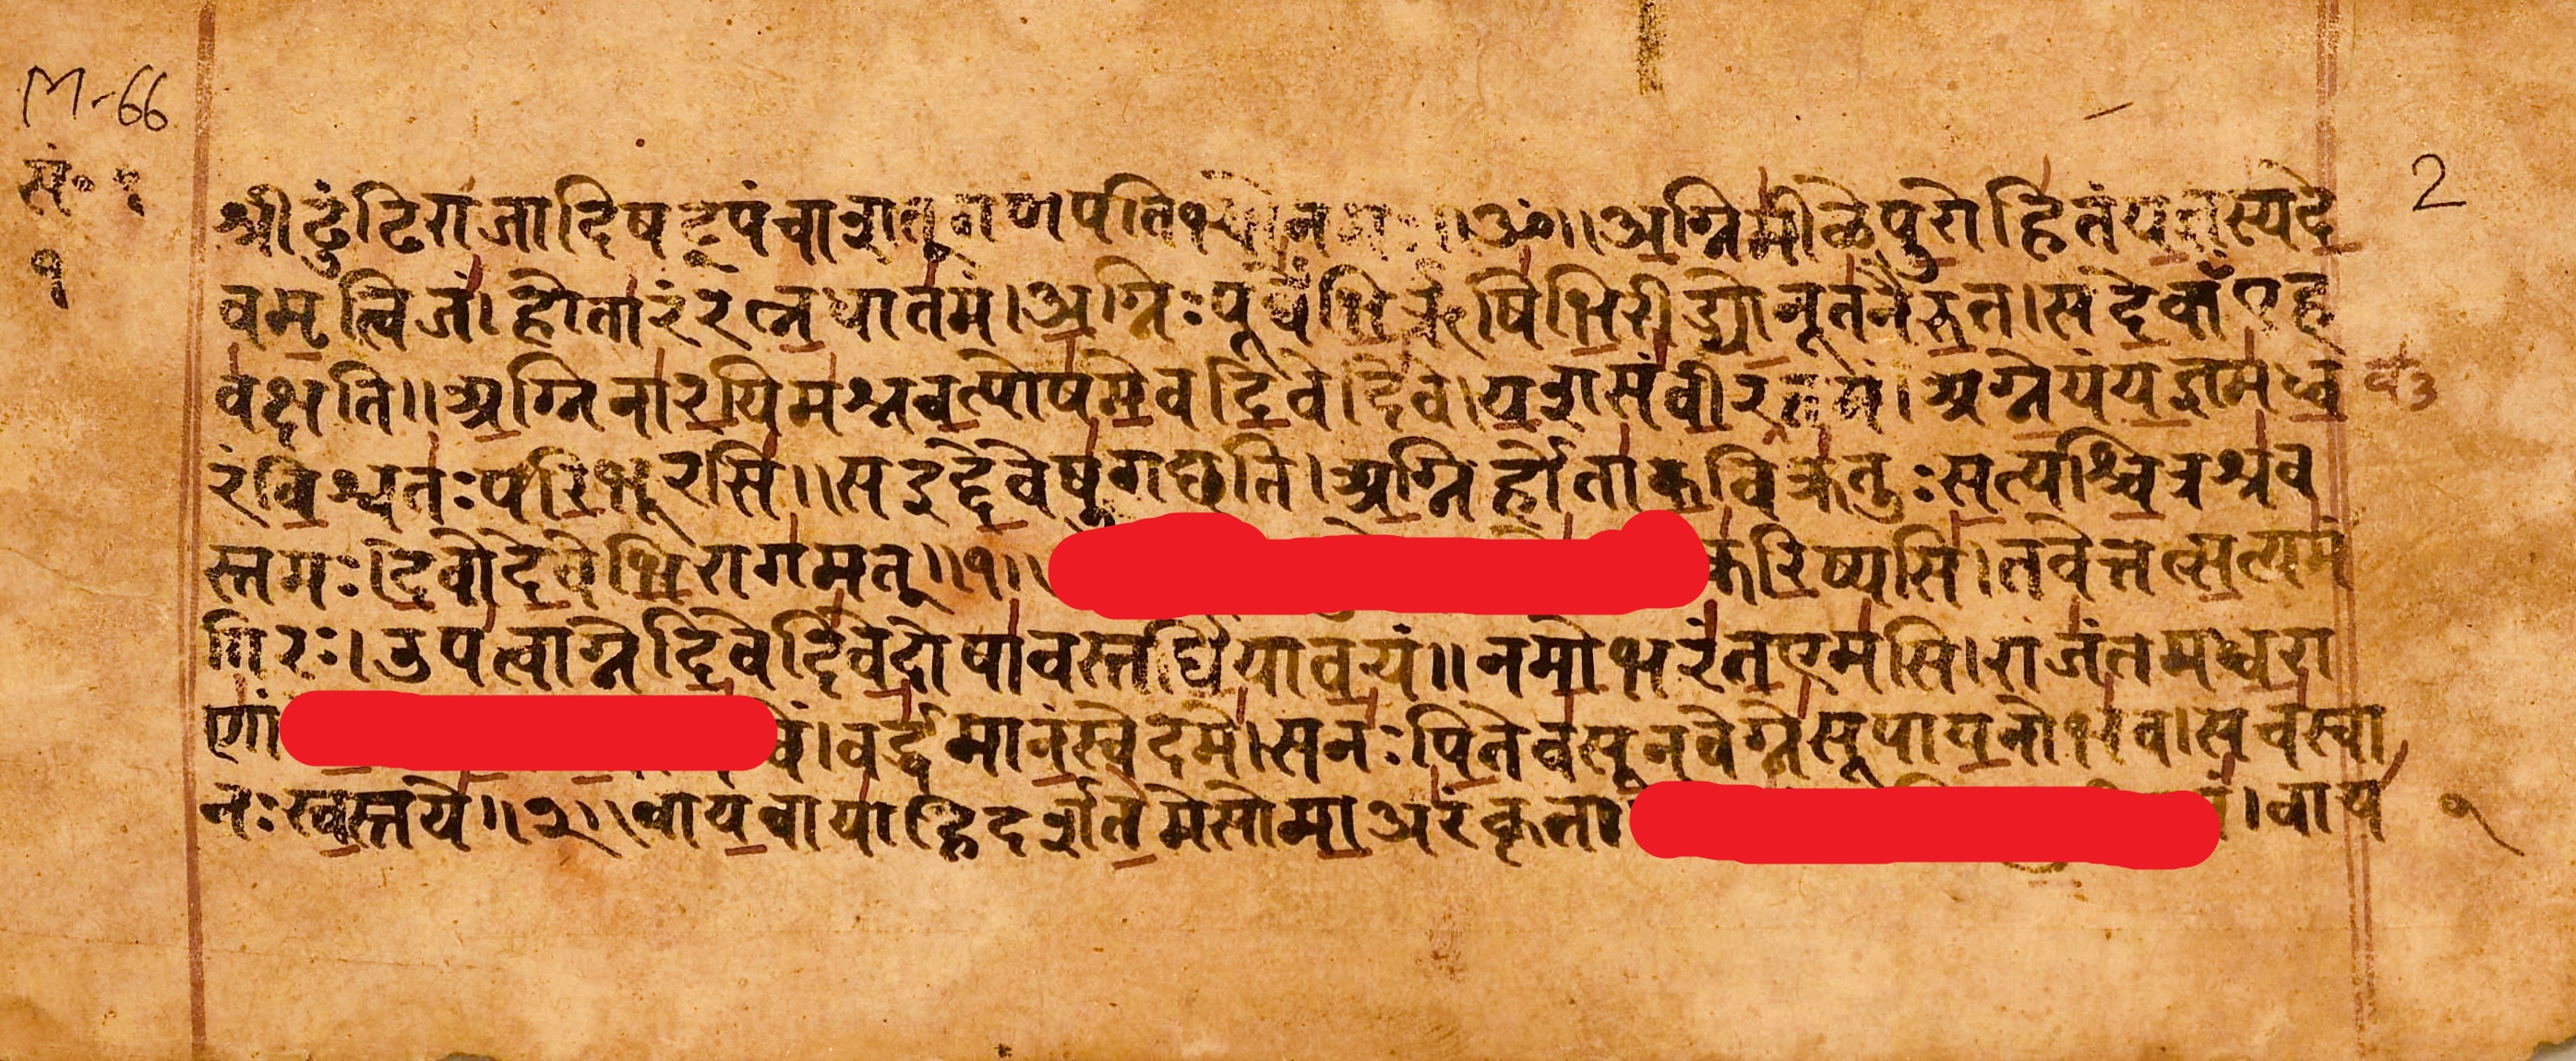 M-66
सं॰ १
१
2
श्रीढुंढिराजादिषट्पंचाशत्गणपतिभ्योनमः।।ॐ।।अग्निमीळेपुरोहितंयज्ञस्यदे
वमृत्विजं।होतारंरत्नधातमं।अग्निःपूर्वेभिर्ऋषिभिरीड्योनूतनैरुत।सदेवाँएह
वक्षति॥अग्निनारयिमश्नवत्पोषमेवदिवेदिवे।यशसंवीरवत्तमं।अग्नेयंयज्ञमध्व
रंविश्वतःपरिभूरसि॥सइद्देवेषुगछति।अग्निर्होताकविक्रतुःसत्यश्चित्रश्रव
स्तमः।देवोदेवेभिरागमत्॥१॥ करिष्यसि।तवेत्तत्सत्यमं
गिरः।उपत्वाग्नेदिवेदिवेदोषावस्तर्धियावयं॥नमोभरंतएमसि।राजंतमध्वरा
णां वर्द्धमानंस्वेदमे।सनःपितेवसूनवेग्नेसूपायनोभव।सचस्वा
नःस्वस्तये॥२॥वायवायाहिदर्शतमेसोमाअरंकृताः ।वाय